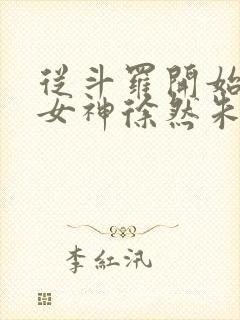 從斗羅開始
女神徐然朱
李紅汛